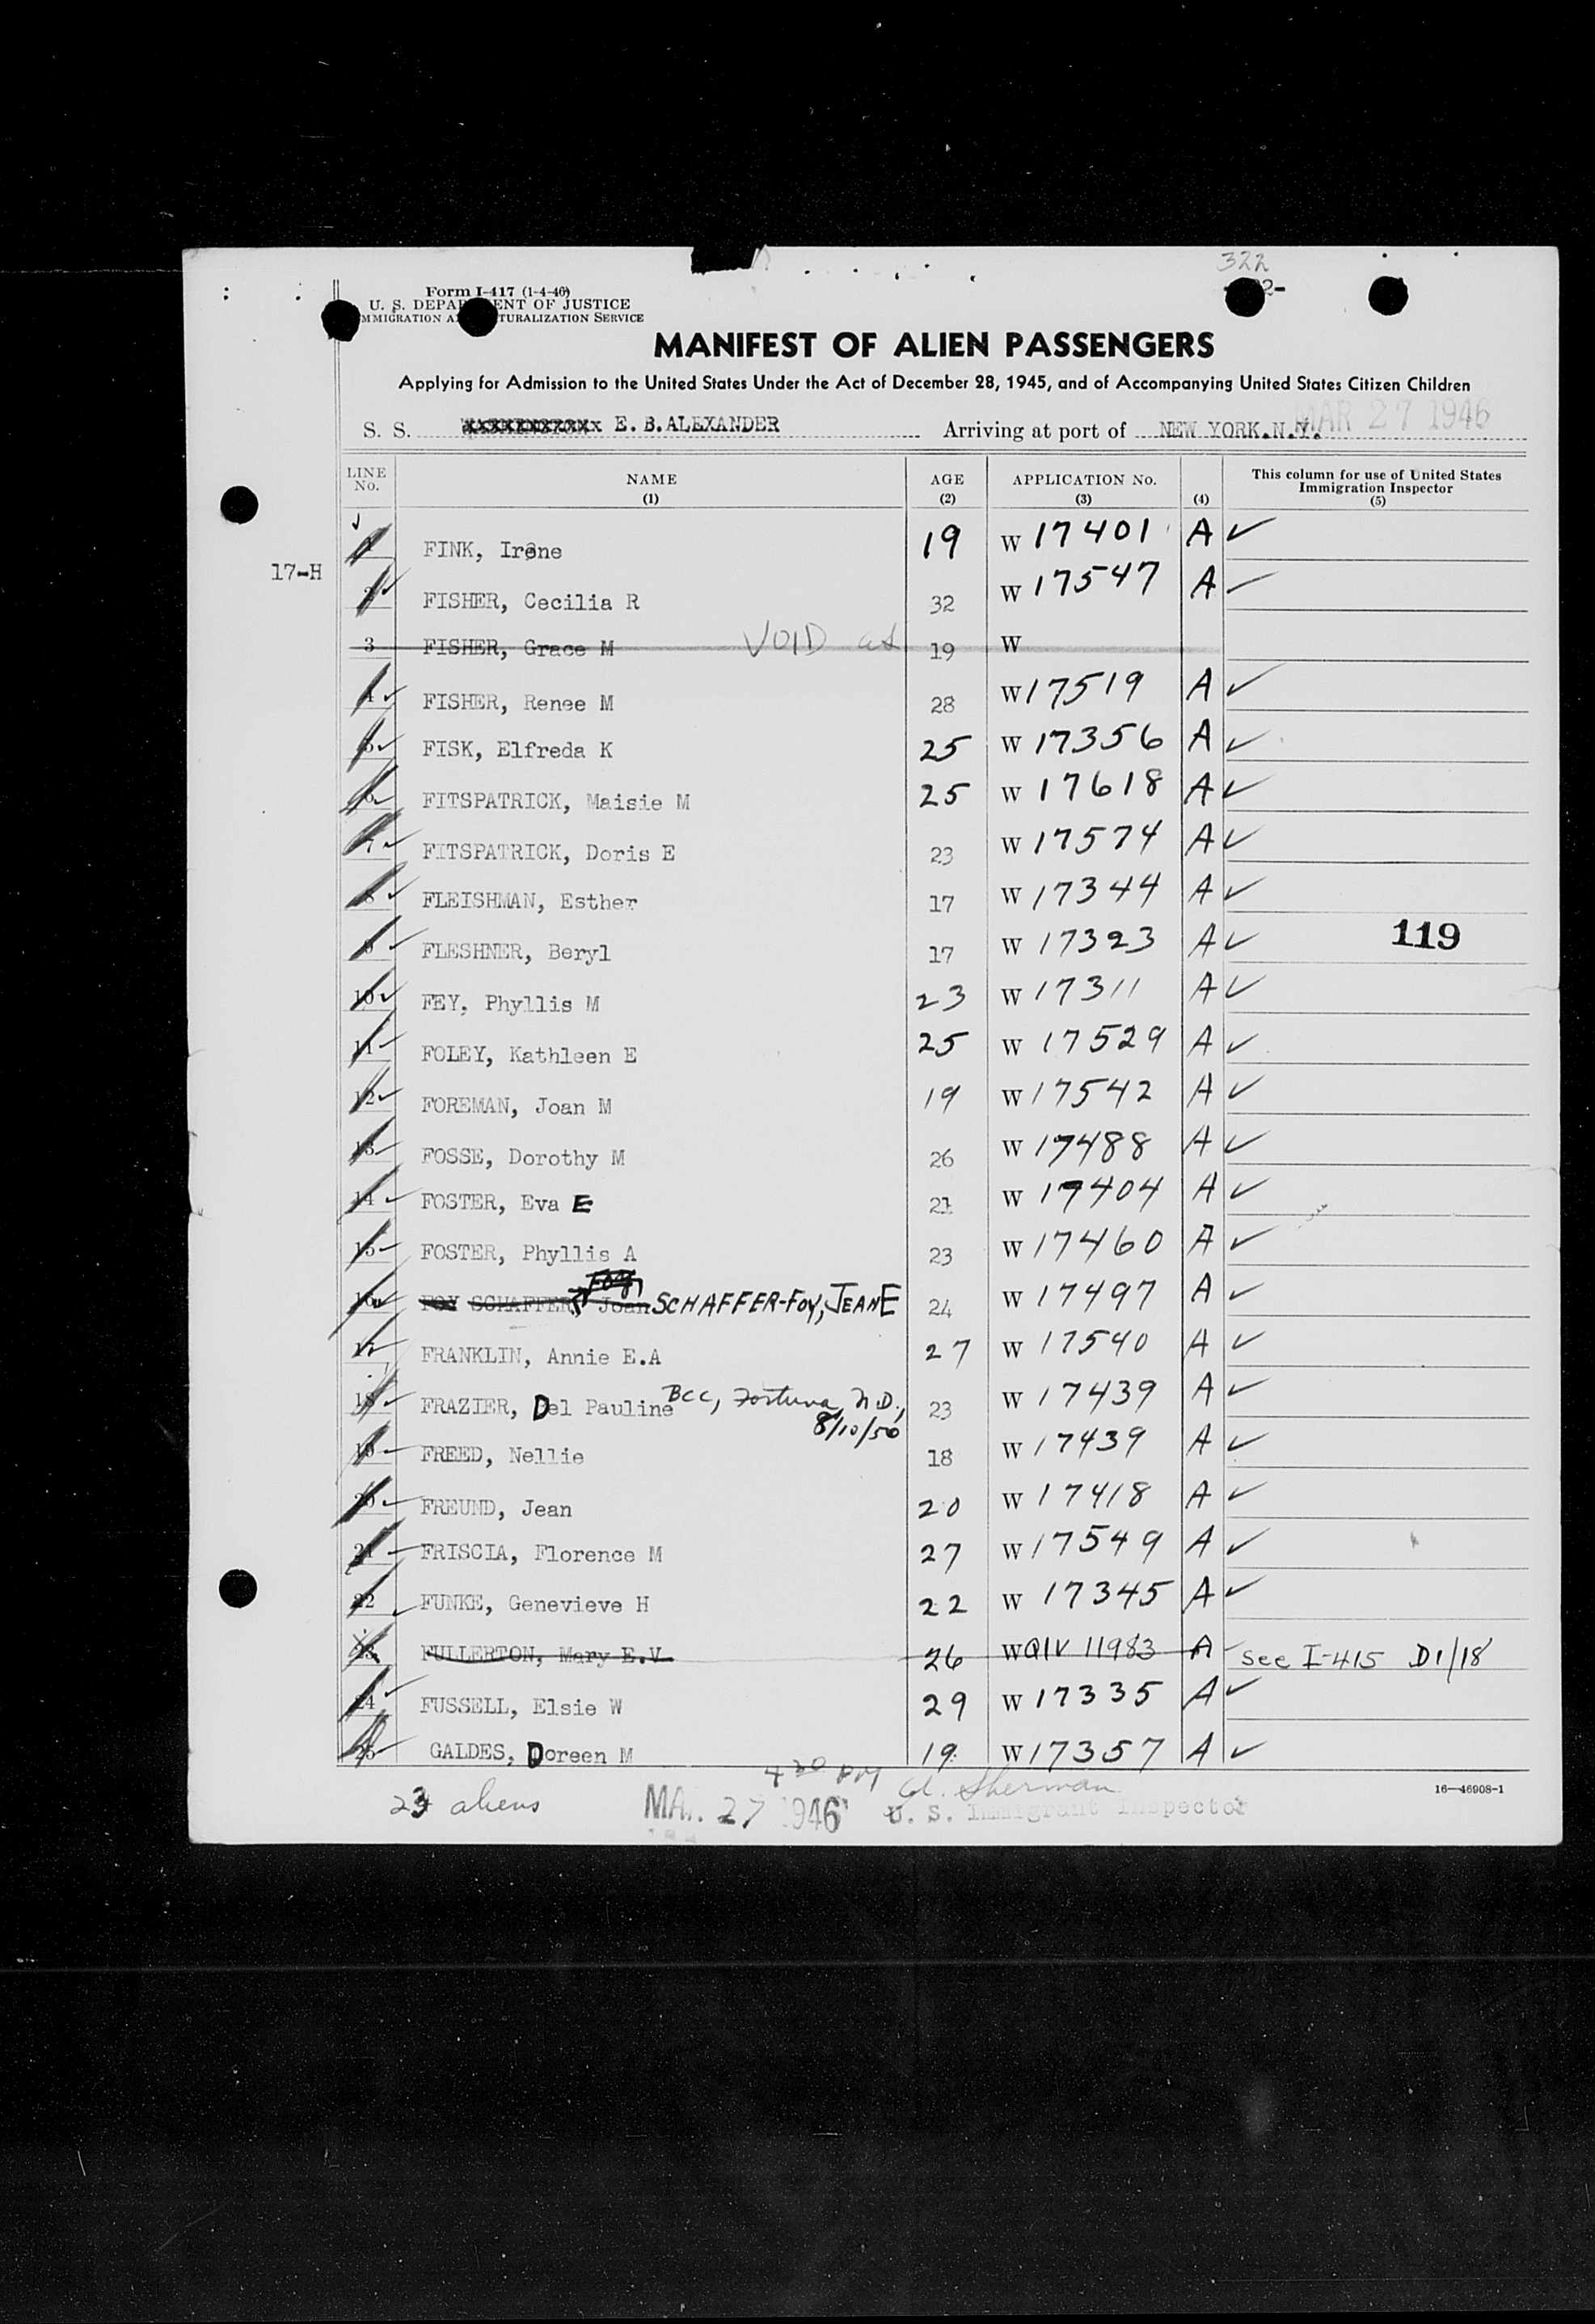 322
Form I-417 (1-4-46)
U. S. DEPARTMENT OF JUSTICE
IMMIGRATION AND NATURALIZATION SERVICE
MANIFEST OF ALIEN PASSENGERS
Applying for Admission to the United States Under the Act of December 28, 1945, and of Accompanying United States Citizen Children
S. S. E. B. ALEXANDER Arriving at port of NEW YORK. N.Y. MAR 27 1946
LINE No. NAME (1) AGE (2) APPLICATION No. (3) (4) This column for use of United States Immigration Inspector (5)
17-H
1 FINK, Irene 19 W 17401 A ✓
2 FISHER, Cecilia R 32 W 17547 A ✓
3 FISHER, Grace M VOID 19 W
4 FISHER, Renee M 28 W 17519 A ✓
5 FISK, Elfreda K 25 W 17356 A ✓
6 FITSPATRICK, Maisie M 25 W 17618 A ✓
7 FITSPATRICK, Doris E 23 W 17574 A ✓
8 FLEISHMAN, Esther 17 W 17344 A ✓
9 FLESHNER, Beryl 17 W 17323 A ✓ 119
10 FEY, Phyllis M 23 W 17311 A ✓
11 FOLEY, Kathleen E 25 W 17529 A ✓
12 FOREMAN, Joan M 19 W 17542 A ✓
13 FOSSE, Dorothy M 26 W 17488 A ✓
14 FOSTER, Eva E 21 W 17404 A ✓
15 FOSTER, Phyllis A 23 W 17460 A ✓
16 FOY SCHAFFER, Joan SCHAFFER-FOY, JEAN E 24 W 17497 A ✓
17 FRANKLIN, Annie E.A 27 W 17540 A ✓
18 FRAZIER, Del Pauline BCC, Fortuna, N.D., 8/10/50 23 W 17439 A ✓
19 FREED, Nellie 18 W 17439 A ✓
20 FREUND, Jean 20 W 17418 A ✓
21 FRISCIA, Florence M 27 W 17549 A ✓
22 FUNKE, Genevieve H 22 W 17345 A ✓
23 FULLERTON, Mary E.V. 26 W QIV 11983 A see I-415 D1/18
24 FUSSELL, Elsie W 29 W 17335 A ✓
25 GALDES, Doreen M 19 W 17357 A ✓
16—46908-1
23 aliens MAR 27 1946 4 30 PM Sherman
U. S. Immigrant Inspector